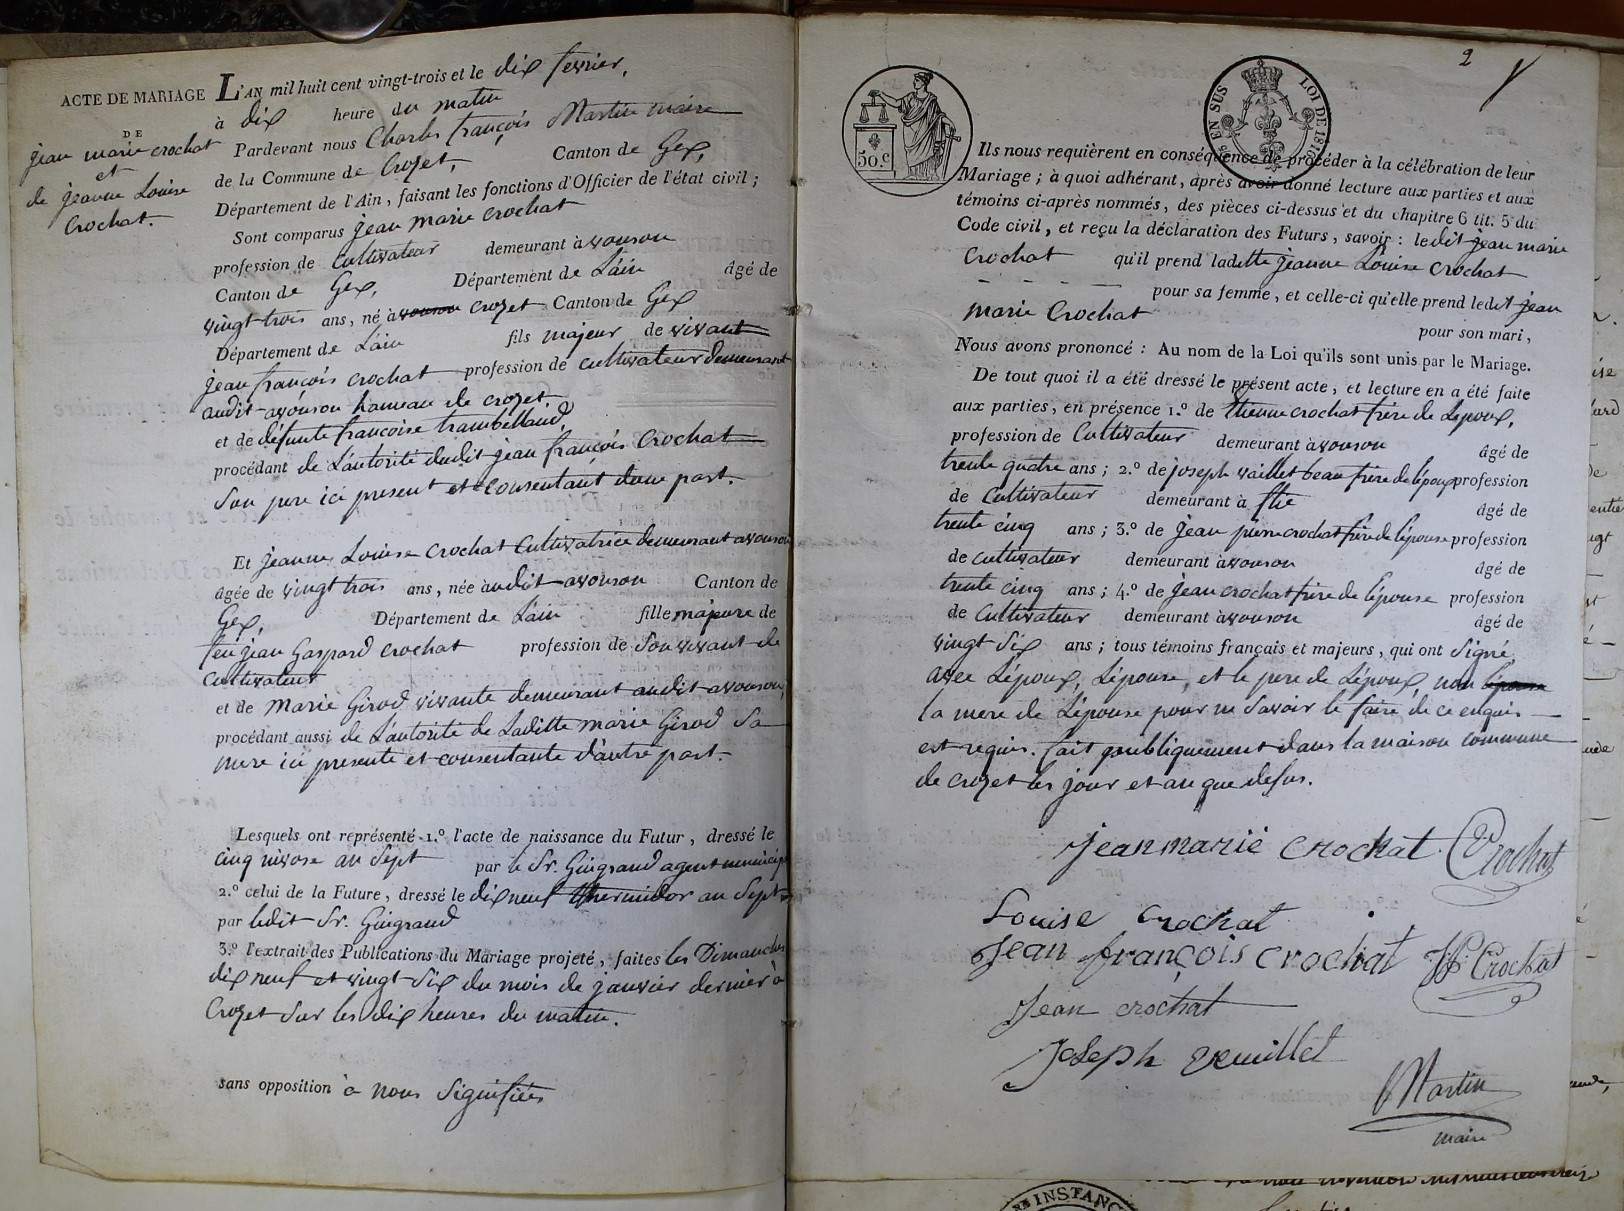 ACTE DE MARIAGE
DE
jean marie crochat
et
de jeanne Louise
Crochat.
L'AN mil huit cent vingt-trois et le dix fevrier,
à dix heure du matin
Pardevant nous Charles françois Martin maire
de la Commune de Crozet, Canton de Gex,
Département de l'Ain, faisant les fonctions d'Officier de l'état civil;
Sont comparus jean marie crochat
profession de Cultivateur demeurant à avouson
Canton de Gex, Département de L'ain âgé de
vingt trois ans, né à avouson crozet Canton de Gex
Département de L'ain fils majeur de vivant
jean françois crochat profession de cultivateur demeurant
audit avouson hameau de crozet,
et de défunte francoise trambelland,
procédant de L'autorité dudit jean françois Crochat
Son pere ici present et consentant dune part.
Et jeanne Louise crochat Cultivatrice demeurant avouson
âgée de vingt trois ans, née audit avouson Canton de
Gex, Département de L'ain fille majeure de
feu jean Gaspard crochat profession de Son vivant de
Cultivateur
et de Marie Girod vivante demeurant audit avouson,
procédant aussi de L'autorité de Laditte marie Girod Sa
mere ici presente et consentante d'autre part.
Lesquels ont représenté 1.º l'acte de naissance du Futur, dressé le
cinq nivose an Sept par le Sr. Guigrand agent municip
2.º celui de la Future, dressé le dix neuf thermidor an Sept
par ledit Sr. Guigrand
3.º l'extrait des Publications du Mariage projeté, faites les Dimanches
dix neuf et vingt Six du mois de janvier dernier à
Crozet Sur les dix heures du matin.
sans opposition à nous Signifiées
2
50.c
EN SUS
LOI DE 1816
Ils nous requièrent en conséquence de procéder à la célébration de leur
Mariage; à quoi adhérant, après avoir donné lecture aux parties et aux
témoins ci-après nommés, des pièces ci-dessus et du chapitre 6 tit. 5 du
Code civil, et reçu la déclaration des Futurs, savoir: ledit jean marie
Crochat qu'il prend laditte jeanne Louise crochat
pour sa femme, et celle-ci qu'elle prend ledit jean
marie Crochat pour son mari,
Nous avons prononcé: Au nom de la Loi qu'ils sont unis par le Mariage.
De tout quoi il a été dressé le présent acte, et lecture en a été faite
aux parties, en présence 1.º de Etienne crochat frère de Lepoux,
profession de Cultivateur demeurant à avouson âgé de
trente quatre ans; 2.º de joseph vaillet beau frère de lépoux profession
de Cultivateur demeurant à flie âgé de
trente cinq ans; 3.º de jean pierre crochat frère de lépouse profession
de cultivateur demeurant à avouson âgé de
trente cinq ans; 4.º de jean crochat frère de lépouse profession
de Cultivateur demeurant à avouson âgé de
vingt Six ans; tous témoins français et majeurs, qui ont Signé
avec Lépoux, Lépouse, et le pere de Lépoux, non lépouse
la mere de Lépouse pour ne Savoir le faire de ce enquis
est requis. fait publiquement dans la maison commune
de crozet les jour et an que desus.
jean marie crochat Crochat
Louise crochat
Jean françois crochat JP. Crochat
Jean crochat
Joseph veuillet
Martin
maire
INSTANC